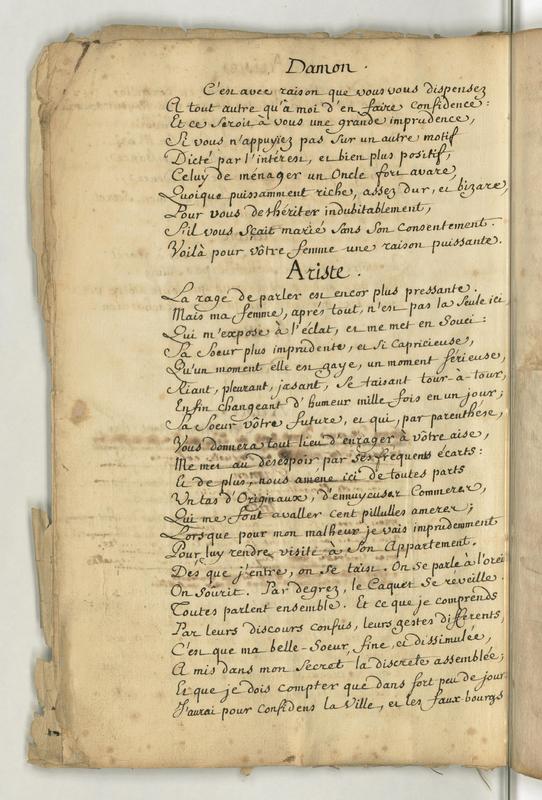 Damon.
C'est avec raison que vous vous dispensez
A tout autre qu'à moi d'en faire confidence:
Et ce seroit à vous une grande imprudence,
Si vous n'appuyiez pas sur un autre motif
Dicté par l'interest, et bien plus positif,
Celuy de ménager un Oncle fort avare,
Quoique puissamment riche, assez dur, et bizare,
Pour vous desheriter indubitablement,
S'il vous sçait marié sans son consentement.
Voilà pour vôtre femme une raison puissante.
Ariste.
La rage de parler est encor plus pressante.
Mais ma femme, aprés tout, n'est pas la seule ici
Qui m'expose à l'éclat, et me met en souci:
Sa Soeur plus imprudente, et si capricieuse,
Qu'un moment elle est gaye, un moment sérieuse,
Riant, pleurant, jasant, se taisant tour-à-tour,
Enfin changeant d'humeur mille fois en un jour;
Sa Soeur vôtre future, et qui, par parenthese,
Vous donnera tout lieu d'enrager à vôtre aise,
Me met au desespoir par ses frequens écarts:
Et de plus, nous améne ici de toutes parts
Un tas d'Originaux, d'ennuyeuses Commeres,
Qui me font avaller cent pillulles ameres;
Lorsque pour mon malheur je vais imprudemment
Pour luy rendre visite à son Appartement.
Des que j'entre, on se taist. On se parle à l'orei
On sourit. Par degrez, le Caquet se reveille.
Toutes parlent ensemble. Et ce que je comprends
Par leurs discours confus, leurs gestes differents,
C'est que ma belle-Soeur, fine, et dissimulée,
A mis dans mon secret la discrete assemblée;
Et que je dois compter que dans fort peu de jour
J'aurai pour confidens la Ville, et les faux bourgs